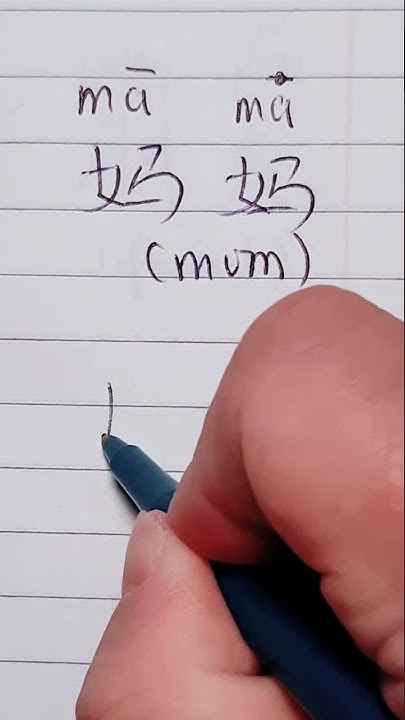 mā mȧ
妈 妈
(mum)